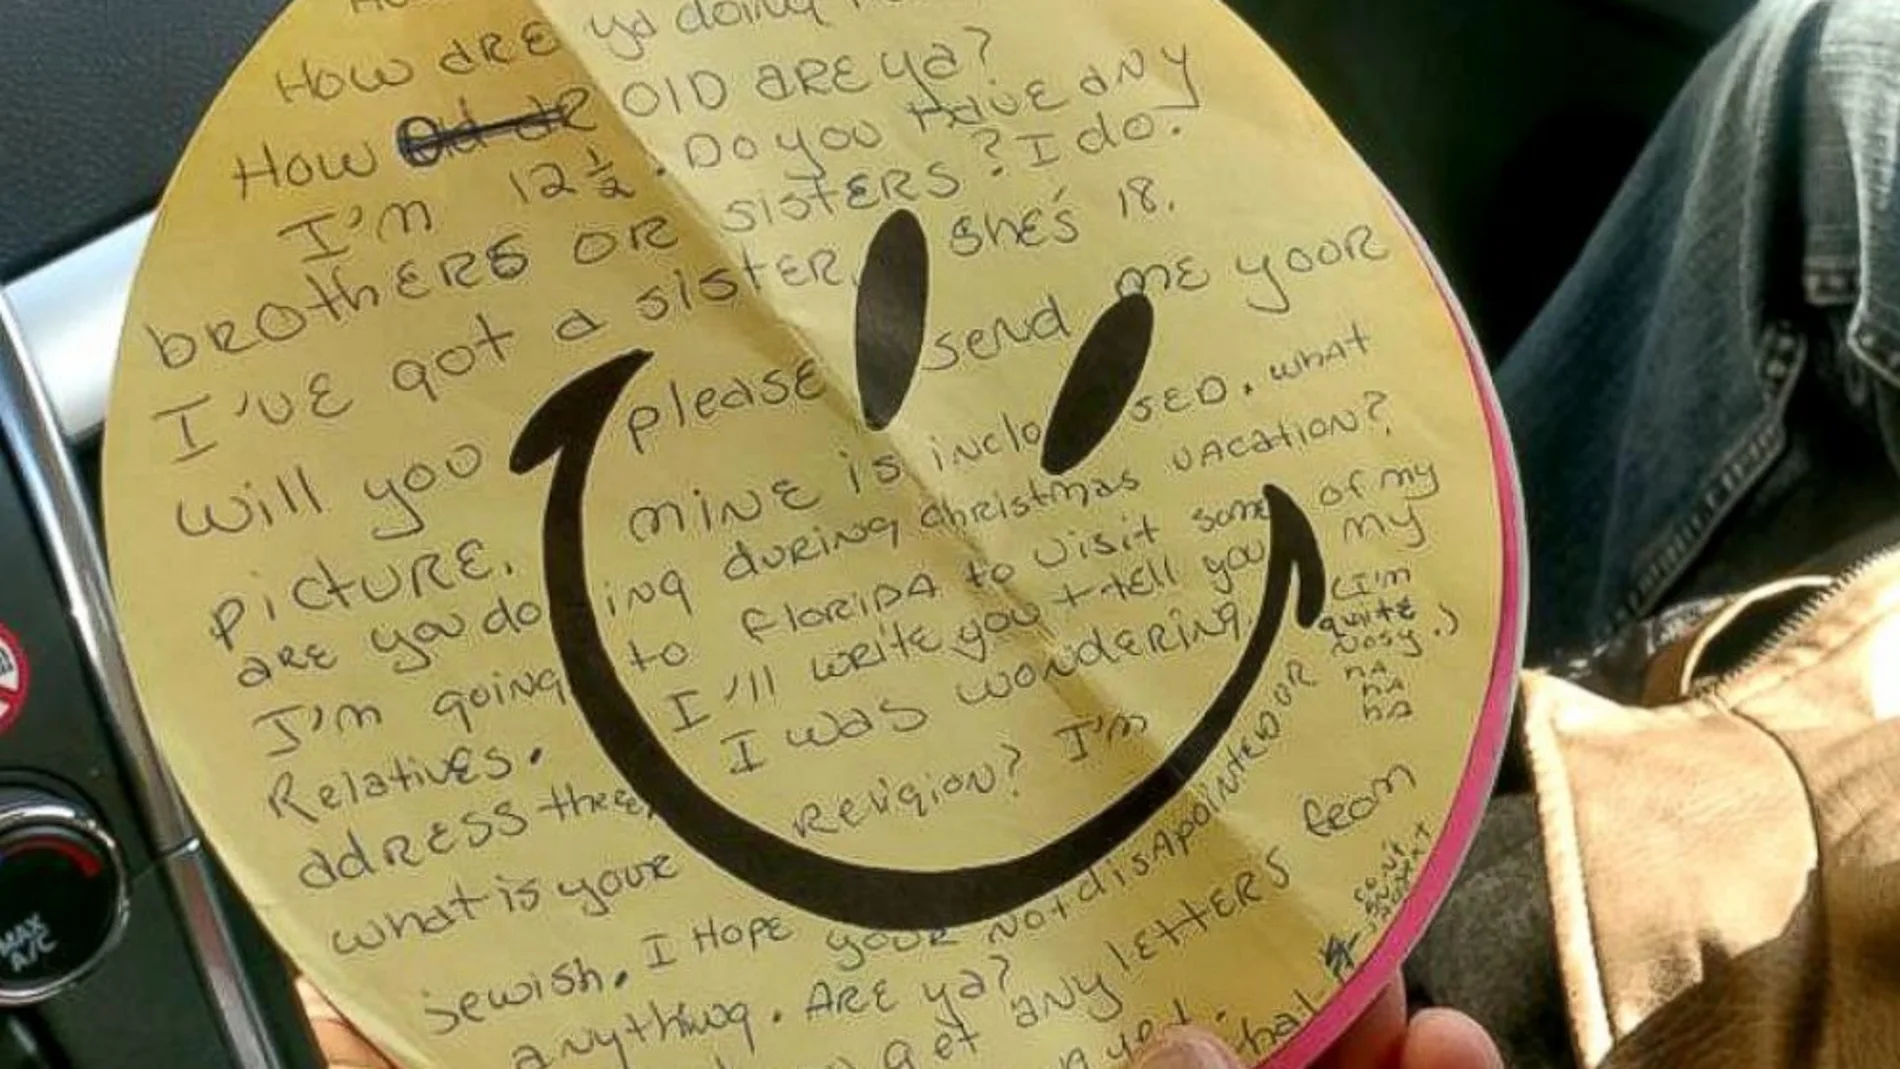 How aRE ya doing
How Old aR OlD aRE ya?
I'm 12 1/2. Do you Have any
bROthERS OR sistERS? I do.
I'vE got a sistER, shE's 18.
will you please send mE yoor
picturE. minE is inclosED. what
arE you doing during christmas vacation?
I'm going to FloriDA to visit some of my
RelativEs. I'll writE you + tell you my
addRESS theRE. I was wondering, (I'm
quitE
nosy.)
hA
hA
hA
what is youR Religion? I'm
jewish. I HopE youR not disapointED OR
anything. ARE ya?
get any lEttERS from
yet.
MAX
A/C